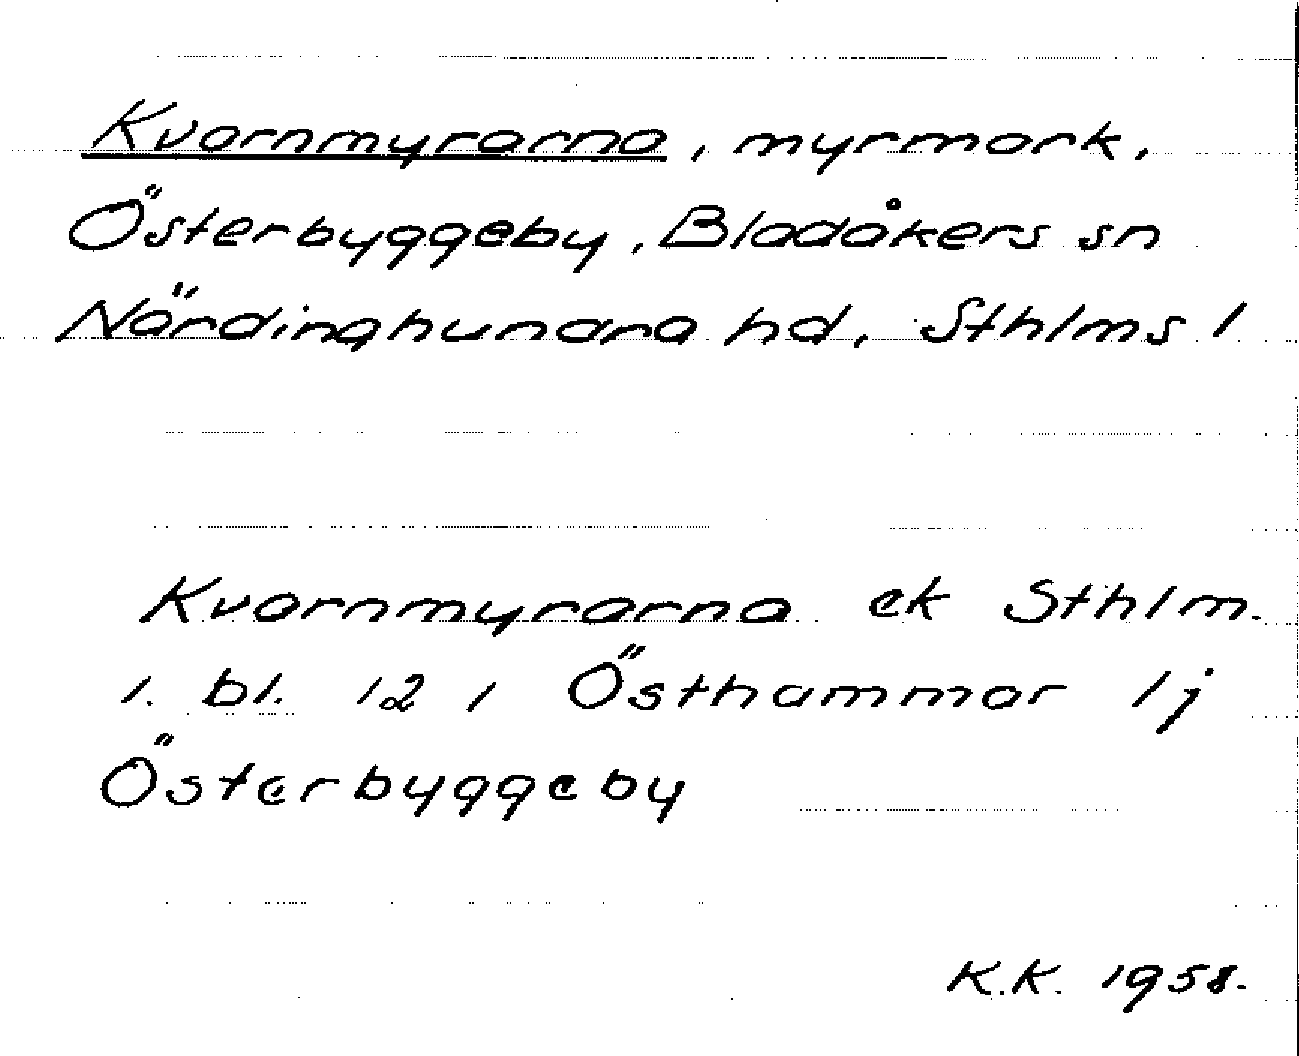 Kvarnmyrarna, myrmark,
Österbyggeby, Bladåkers sn
Närdinghundra hd, Sthlms l
Kvarnmyrarna ek Sthlm.
l. bl. 12 i Östhammar lj
Österbyggeby
K.K. 1958.